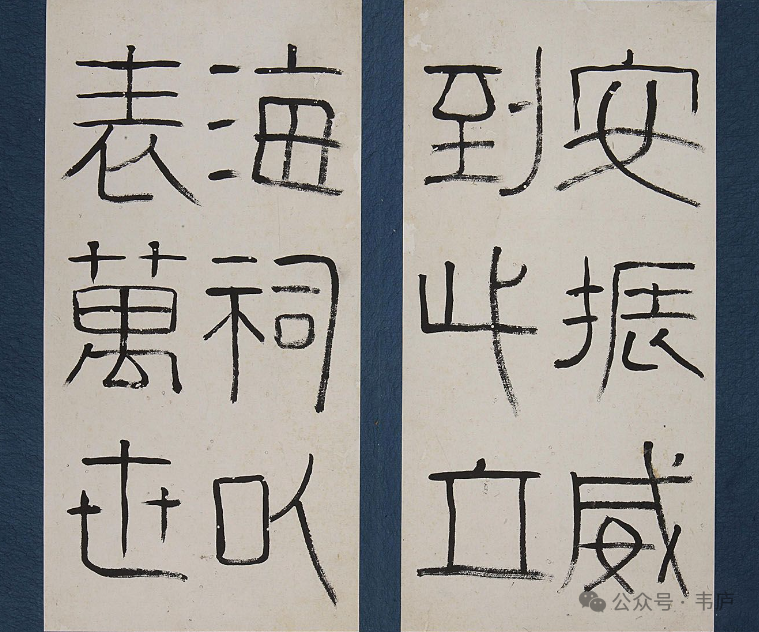 安振威
到此立
海祠以
表萬世
公众号·韦庐